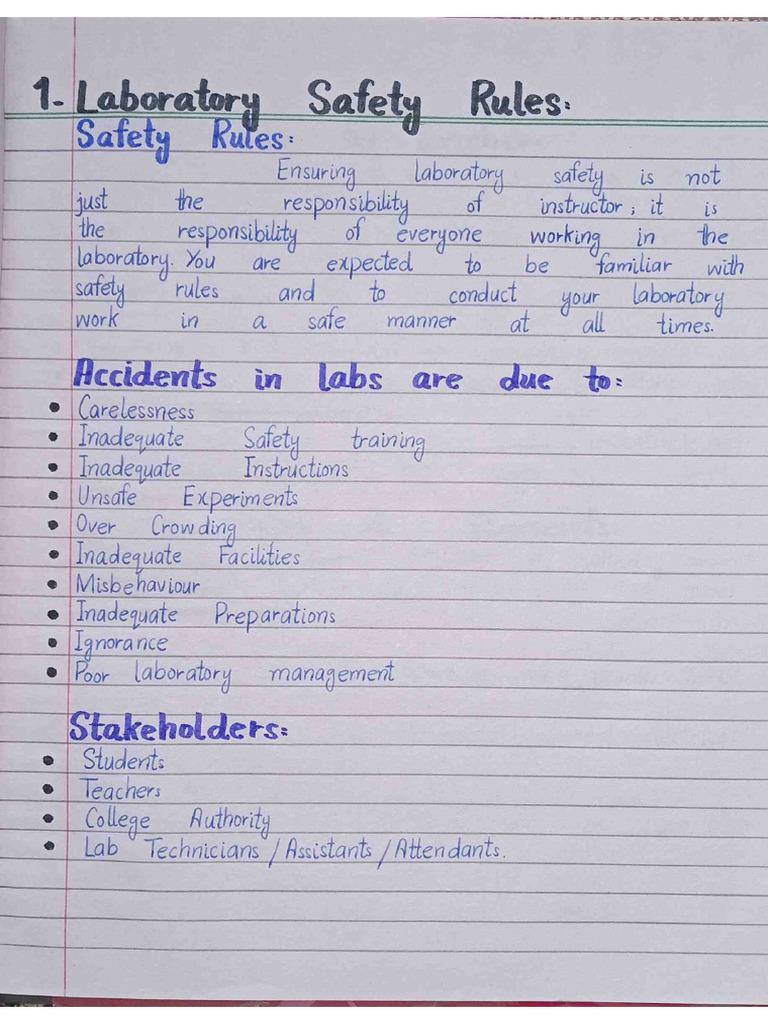 1. Laboratory Safety Rules:
Safety Rules:
Ensuring laboratory safety is not
just the responsibility of instructor; it is
the responsibility of everyone working in the
laboratory. You are expected to be familiar with
safety rules and to conduct your laboratory
work in a safe manner at all times.
Accidents in labs are due to:
• Carelessness
• Inadequate Safety training
• Inadequate Instructions
• Unsafe Experiments
• Over Crowding
• Inadequate Facilities
• Misbehaviour
• Inadequate Preparations
• Ignorance
• Poor laboratory management
Stakeholders:
• Students
• Teachers
• College Authority
• Lab Technicians / Assistants / Attendants.